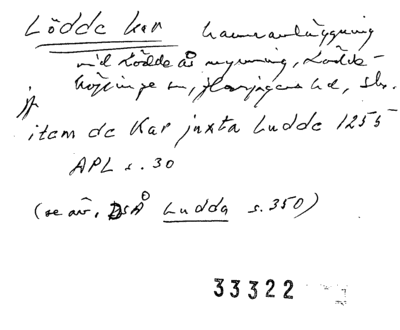 Lödde kar hamnanläggning
vid Lödde å mynning, Lödde-
köpinge sn, Harjagers hd, Sk.
jf
item de Kar juxta Ludde 1255
APL s. 30
(se äv. DSÅ Ludda s. 350)
33322